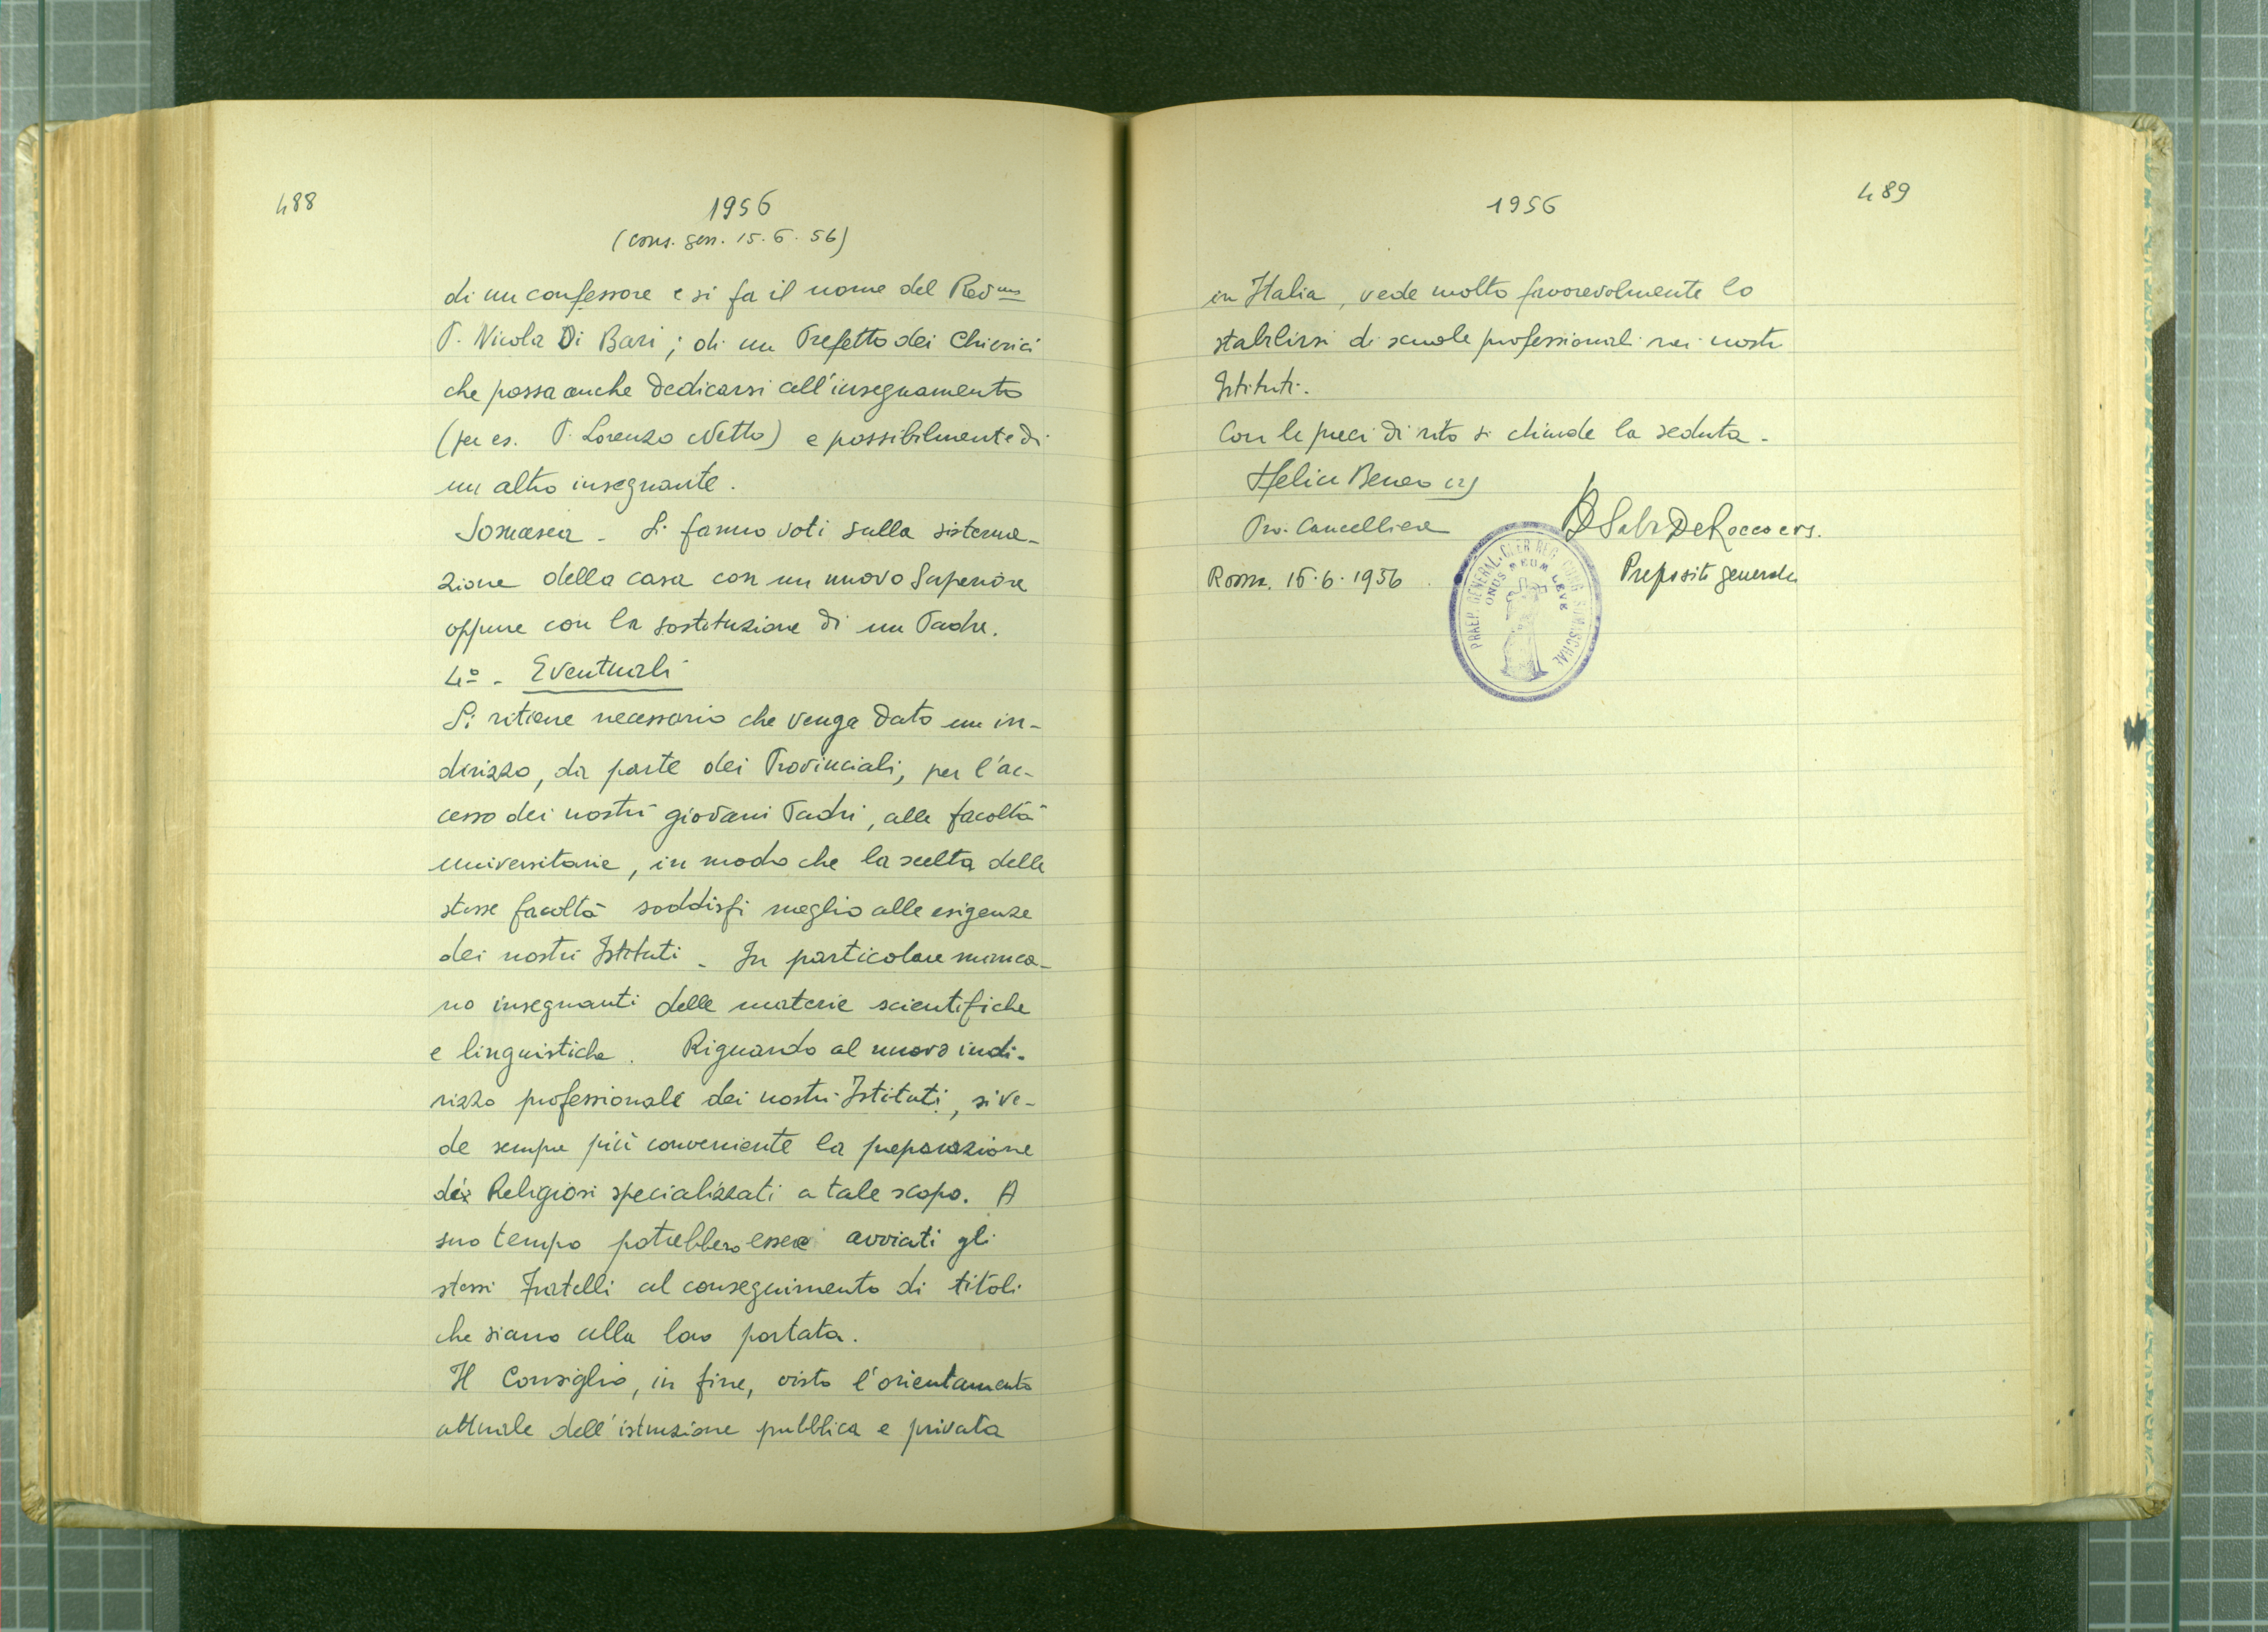 488
1956
(cons. gen. 15.6.56)
di un confessore e si fa il nome del Rev.mo
P. Nicola Di Bari; di un Prefetto dei Chierici
che possa anche dedicarsi all'insegnamento
(per es. P. Lorenzo Netto) e possibilmente di
un altro insegnante.
Somasca - Si fanno voti sulla sistema-
zione della casa con un nuovo Superiore
oppure con la sostituzione di un Padre.
4º - Eventuali
Si ritiene necessario che venga dato un in-
dirizzo, da parte dei Provinciali, per l'ac-
cesso dei nostri giovani Padri, alle facoltà
universitarie, in modo che la scelta delle
stesse facoltà soddisfi meglio alle esigenze
dei nostri Istituti - In particolare manca-
no insegnanti delle materie scientifiche
e linguistiche. Riguardo al nuovo indi-
rizzo professionale dei nostri Istituti, si ve-
de sempre più conveniente la preparazione
di Religiosi specializzati a tale scopo. A
suo tempo potrebbero essere avviati gli
stessi Fratelli al conseguimento di titoli
che siano alla loro portata.
Il Consiglio, in fine, visto l'orientamento
attuale dell'istruzione pubblica e privata
489
1956
in Italia, vede molto favorevolmente lo
stabilirsi di scuole professionali nei nostri
Istituti.
Con le preci di rito si chiude la seduta -
Pro. Cancelliere
De Rocco crs.
Roma. 15.6.1956
Preposito generale
PRAEP. GENERAL. CLER. REG. CONG. SOMASCHAE
ONUS MEUM LEVE